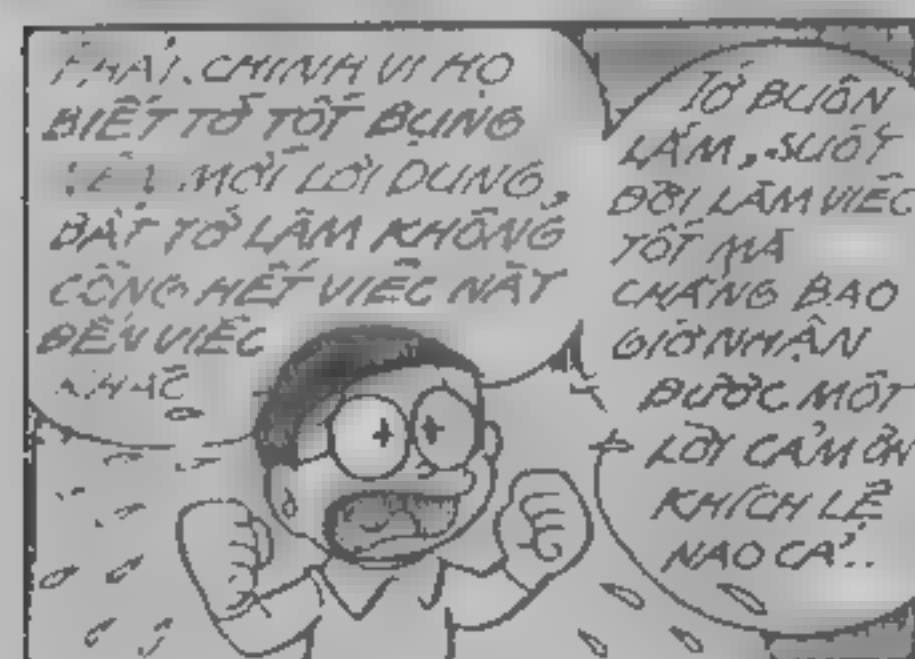 PHẢI. CHÍNH VÌ HỌ
BIẾT TỚ TỐT BỤNG
NÊN MỚI LỢI DỤNG,
BẮT TỚ LÀM KHÔNG
CÔNG HẾT VIỆC NÀY
ĐẾN VIỆC
KHÁC
TỚ BUỒN
LẮM, SUỐT
ĐỜI LÀM VIỆC
TỐT MÀ
CHẲNG BAO
GIỜ NHẬN
ĐƯỢC MỘT
LỜI CẢM ƠN
KHÍCH LỆ
NÀO CẢ..